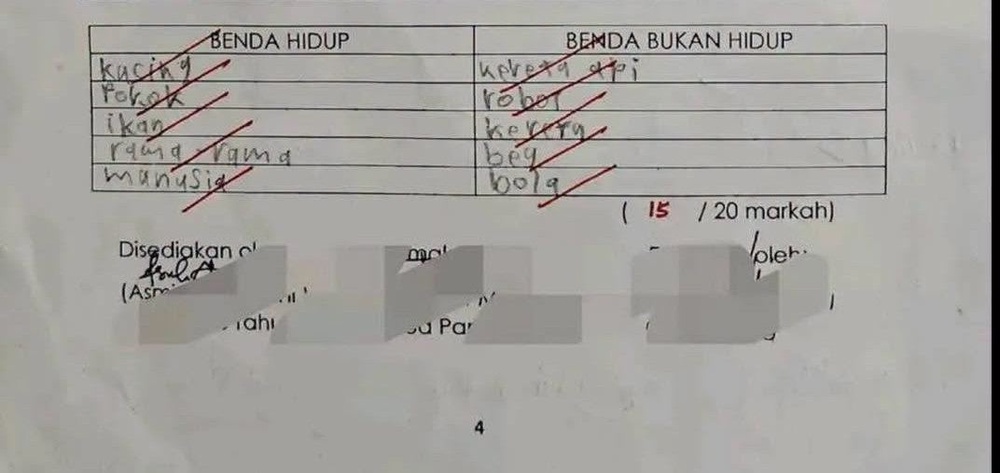 BENDA HIDUP BENDA BUKAN HIDUP
kucing kereta api
Pokok robot
ikan kereta
rama-rama beg
manusia bola
( 15 / 20 markah)
Disediakan
4